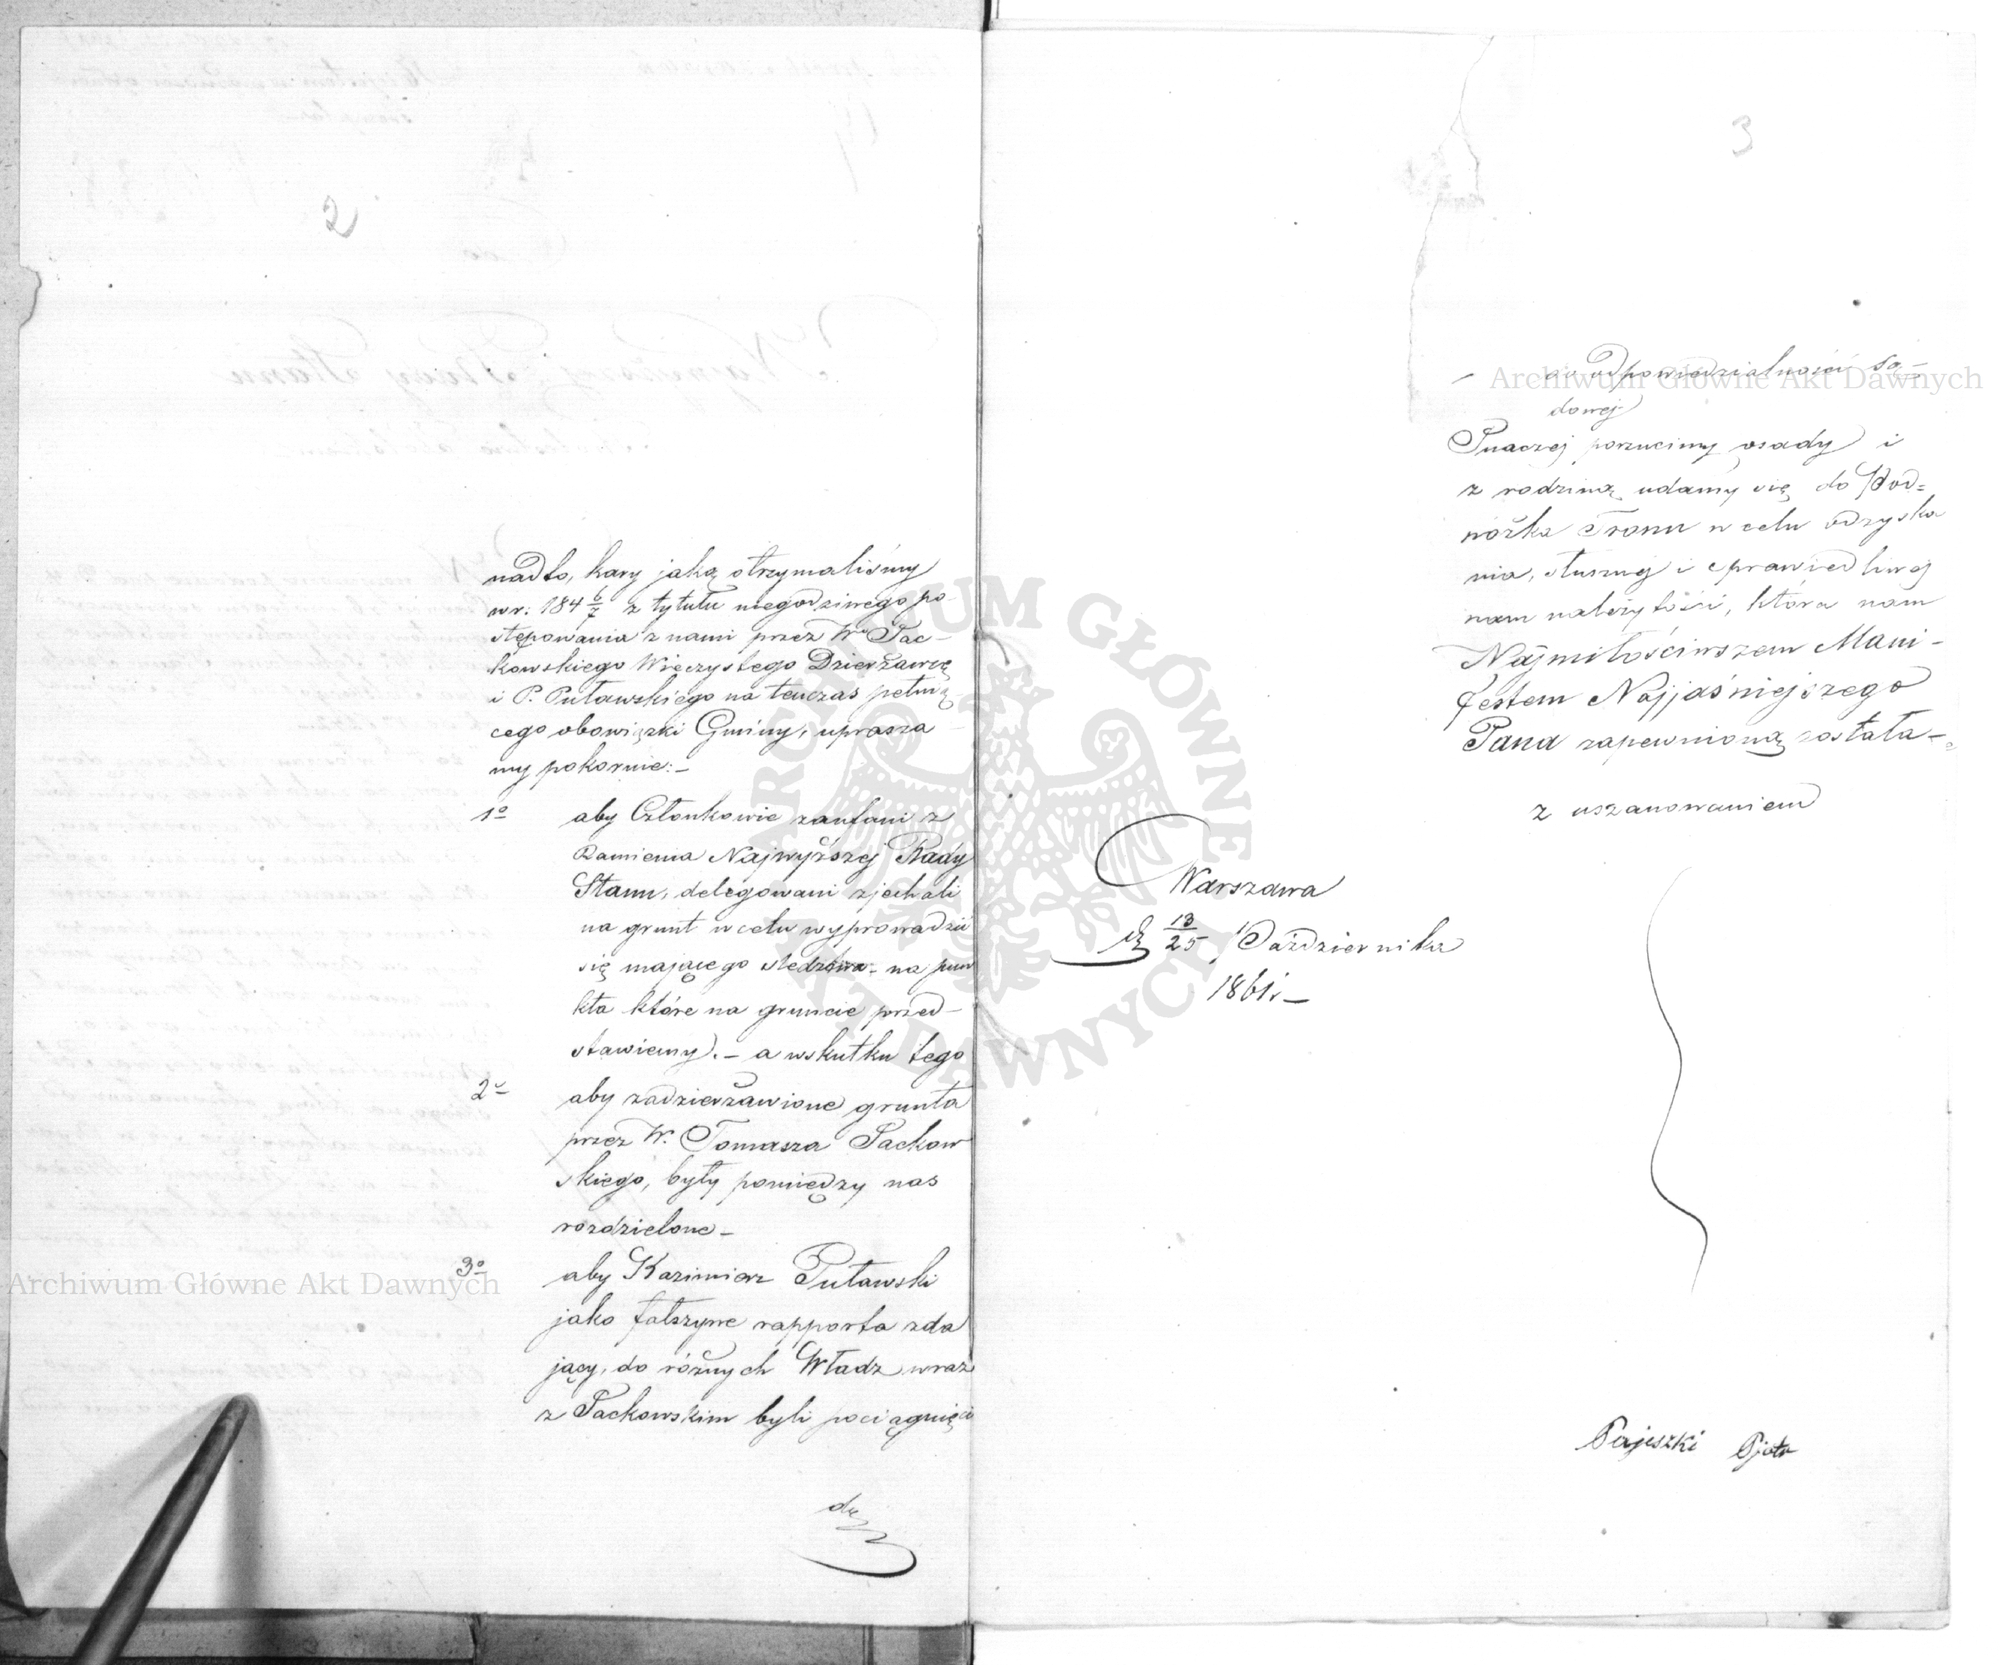 2
nadto, kary jaką otrzymaliśmy
w r: 184 6/7 z tytułu niegodziwego po-
stępowania z nami przez Wo Pac-
kowskiego Wieczystego Dzierżawcę
i P. Puławskiego na tenczas pełnią
cego obowiązki Gminy, uprasza
my pokornie:-
1o aby Członkowie zaufani z
Ramienia Najwyższej Rady
Stanu, delegowani zjechali
na grunt w celu wyprowadzić
się mającego śledztwa - na pun
kta które na gruncie przed-
stawiemy. - a wskutku tego
2o aby zadzierżawione grunta
przez W. Tomasza Packow
skiego, były pomiędzy nas
rozdzielone -
3o aby Kazimierz Puławski
jako fałszywe rapporta zda
jący, do różnych Władz wraz
z Packowskim byli pociągnięci
do
3
- do odpowiedzialności są-
dowej
Inaczej porzucimy osady i
z rodziną udamy się do Pod=
nóżka Tronu w celu odzyska
nia, słusznej i sprawiedliwej
nam należytości, która nam
Najmiłościwszem Mani-
festem Najjaśniejszego
Pana zapewnioną została -
z uszanowaniem
Warszawa
d. 13/25 Października
1861 r. -
Pajeszki Pjotr
ARCHIWUM GŁÓWNE AKT DAWNYCH
Archiwum Główne Akt Dawnych
Archiwum Główne Akt Dawnych